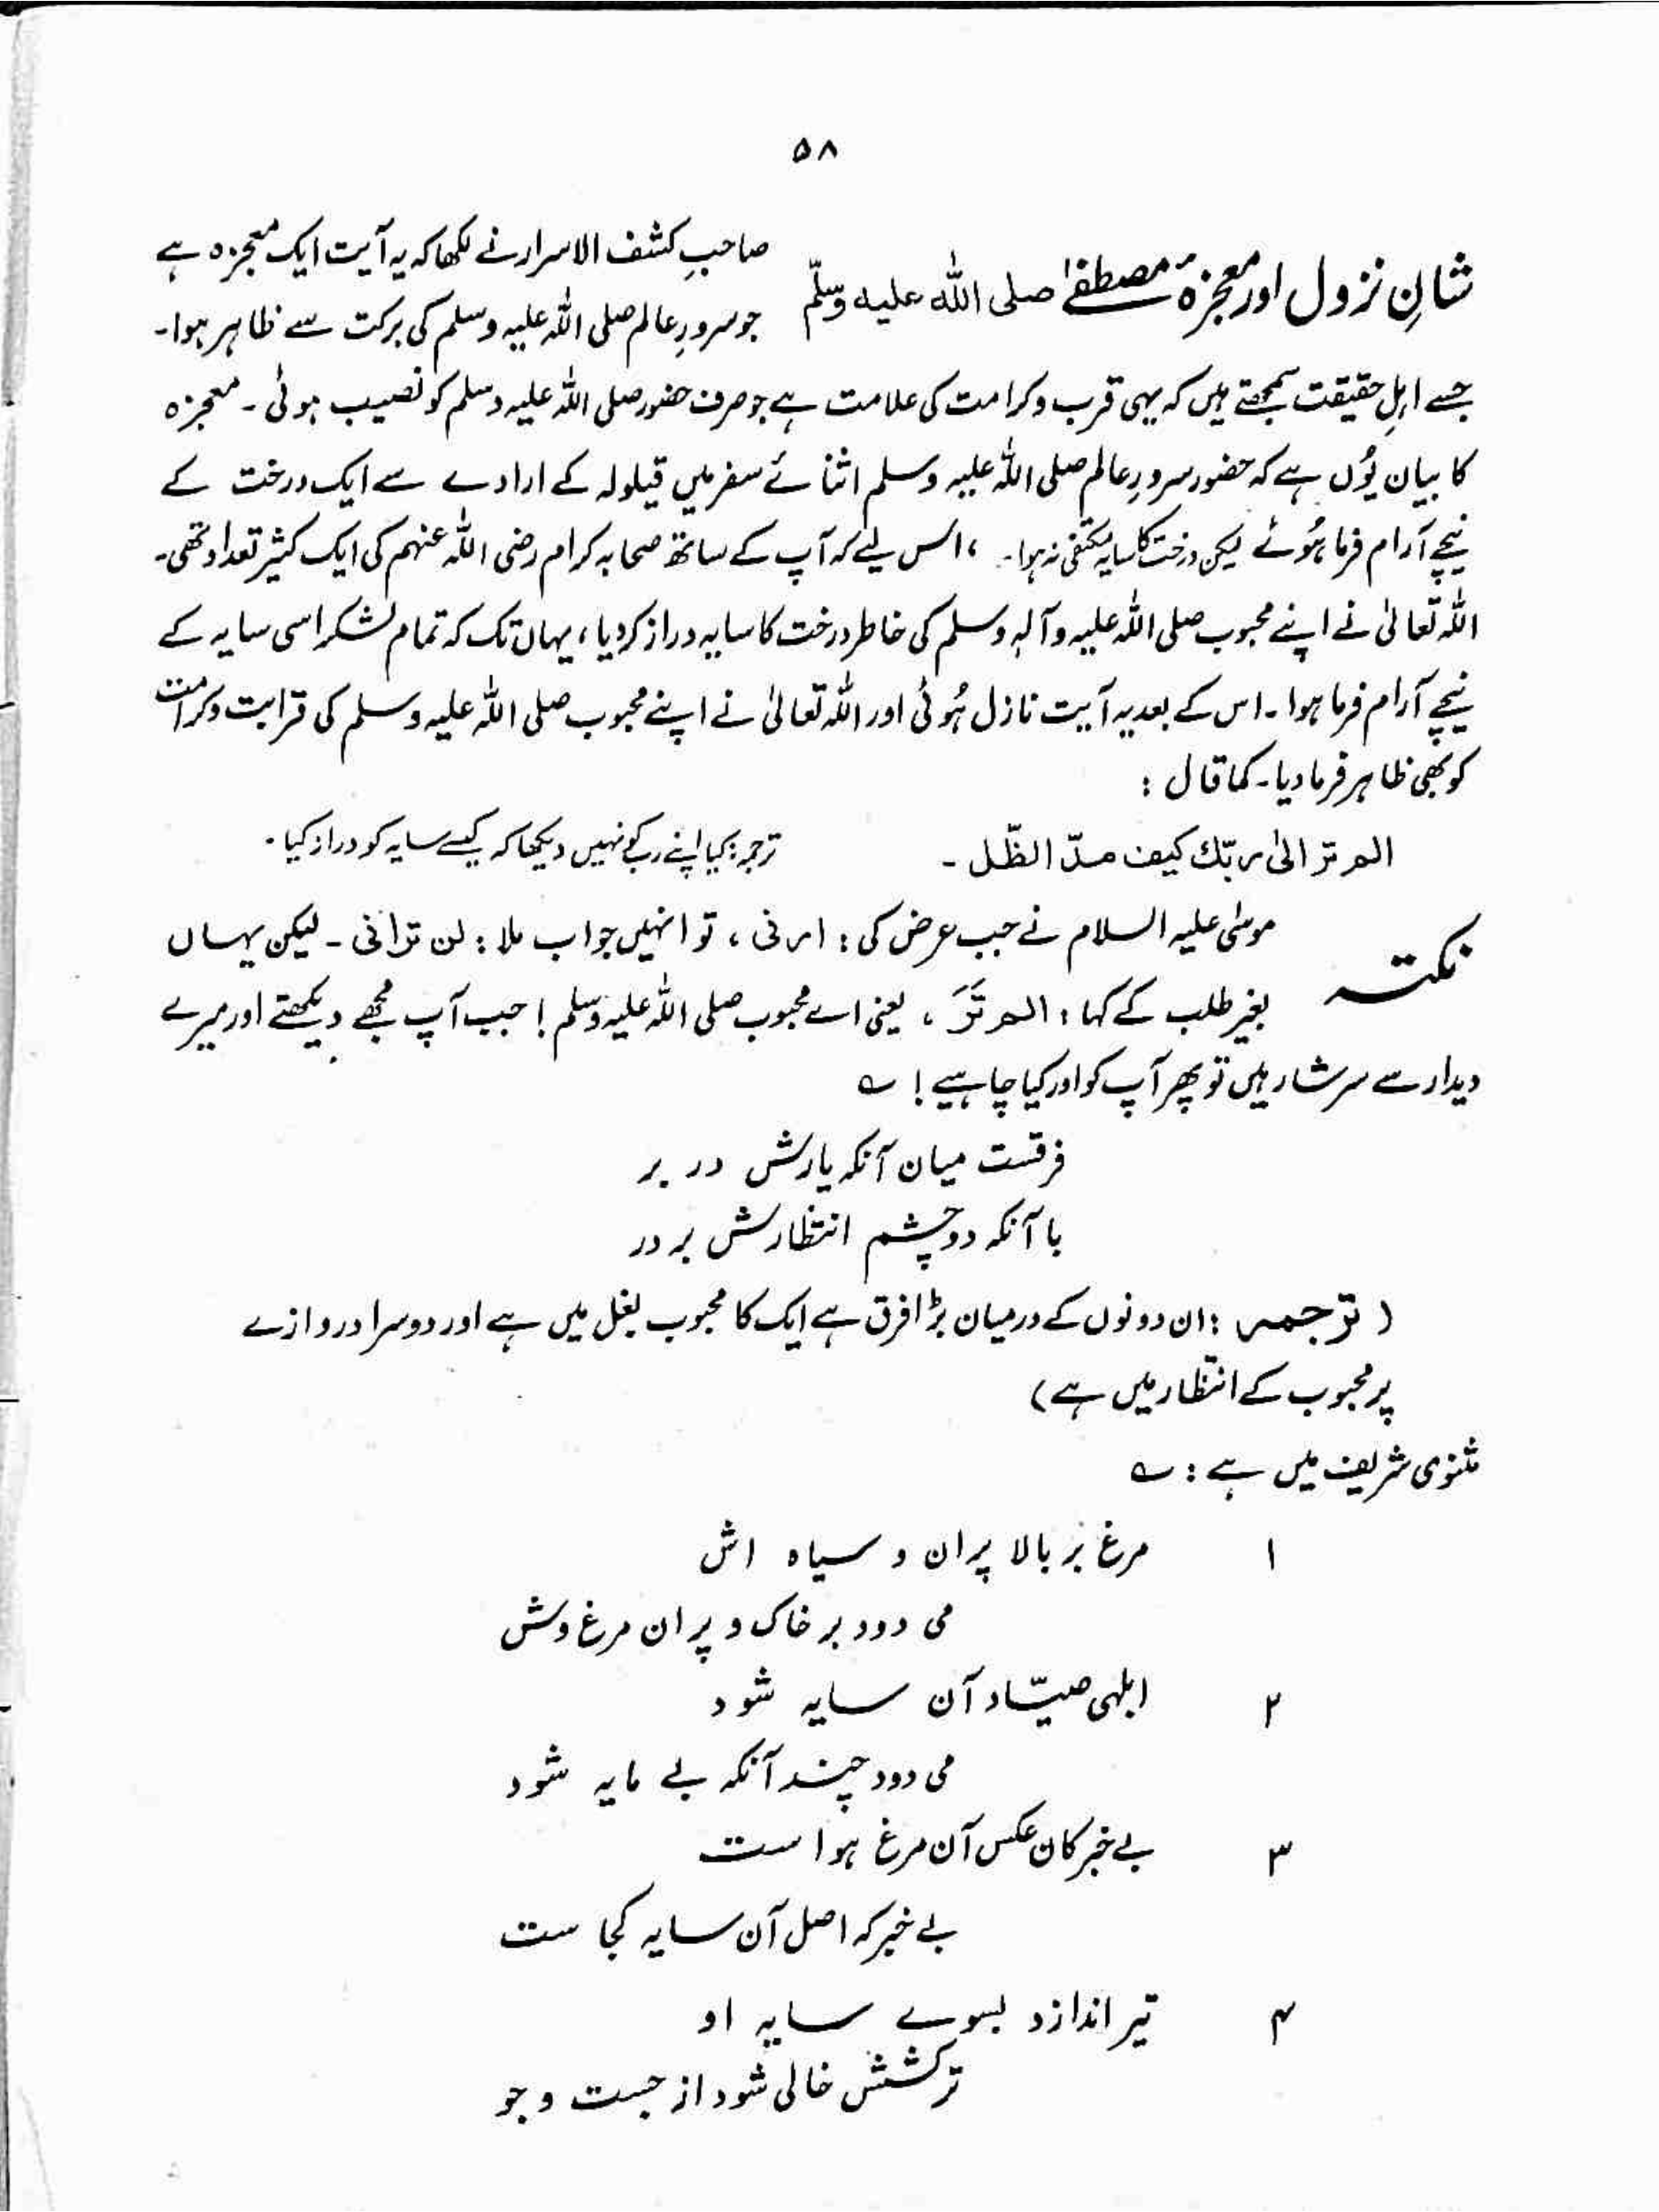 ۵۸
شانِ نزول اور معجزۂ مصطفےٰ صلی اللہ علیہ وسلّم
صاحبِ کشف الاسرار نے لکھا کہ یہ آیت ایک معجزہ ہے
جو سرورِ عالم صلی اللہ علیہ وسلم کی برکت سے ظاہر ہوا۔
جسے اہلِ حقیقت سمجھتے ہیں کہ یہی قرب و کرامت کی علامت ہے جو صرف حضور صلی اللہ علیہ وسلم کو نصیب ہوئی ۔ معجزہ
کا بیان یُوں ہے کہ حضور سرورِ عالم صلی اللہ علیہ وسلم اثنائے سفر میں قیلولہ کے ارادے سے ایک درخت کے
نیچے آرام فرما ہُوئے لیکن درخت کا سایہ مکتفی نہ ہوا۔ ، اس لیے کہ آپ کے ساتھ صحابہ کرام رضی اللہ عنہم کی ایک کثیر تعداد تھی۔
اللہ تعالیٰ نے اپنے محبوب صلی اللہ علیہ وآلہٖ وسلم کی خاطر درخت کا سایہ دراز کر دیا ، یہاں تک کہ تمام لشکر اسی سایہ کے
نیچے آرام فرما ہوا ۔ اس کے بعد یہ آیت نازل ہُوئی اور اللہ تعالیٰ نے اپنے محبوب صلی اللہ علیہ وسلم کی قرابت و کرامت
کو بھی ظاہر فرما دیا۔ کما قال :
الم تر الیٰ ربّك کیف مدّ الظّل ۔
ترجمہ : کیا اپنے رب کے نہیں دیکھا کہ کیسے سایہ کو دراز کیا ۔
نکتہ
موسٰی علیہ السلام نے جب عرض کی : ارنی ، تو انہیں جواب ملا : لن ترانی ۔ لیکن یہاں
بغیر طلب کے کہا : الم تَرَ ، یعنی اے محبوب صلی اللہ علیہ وسلم ! جب آپ مجھے دیکھتے اور میرے
دیدار سے سرشار ہیں تو پھر آپ کو اور کیا چاہیے ! ؎
فرقست میان آنکہ یارش در بر
با آنکہ دو چشم انتظارش بر در
( ترجمہ : ان دونوں کے درمیان بڑا فرق ہے ایک کا محبوب بغل میں ہے اور دوسرا دروازے
پر محبوب کے انتظار میں ہے )
مثنوی شریف میں ہے : ؎
۱ مرغ بر بالا پران و سیاہ اش
می دود بر خاک و پران مرغ وش
۲ ابلہی صیّاد آن سایہ شود
می دود چند آنکہ بے مایہ شود
۳ بے خبر کان عکس آن مرغ ہواست
بے خبر کہ اصل آن سایہ کجاست
۴ تیر اندازد بسوے سایہ او
ترکشش خالی شود از جست و جو